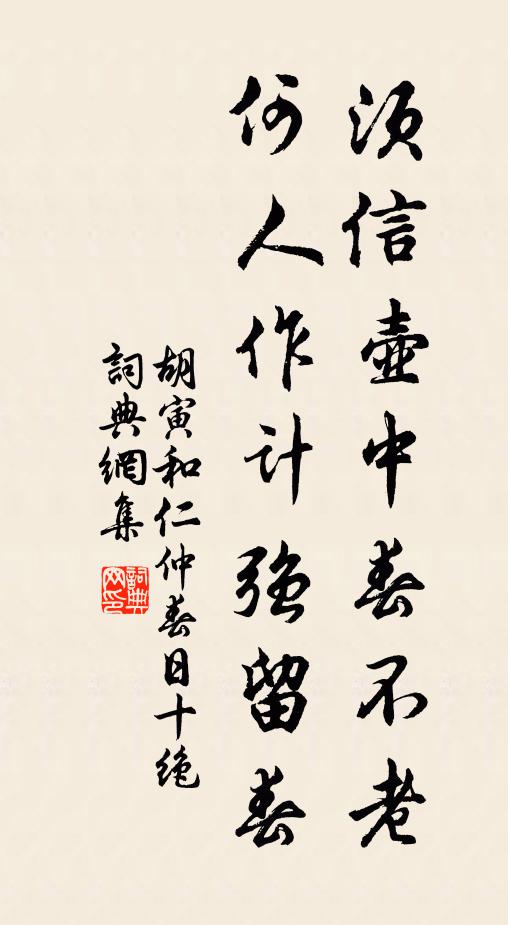 須信壺中春不老
何人作計強留春
胡寅和仁仲春日十絶
詞典網集
詞典網印